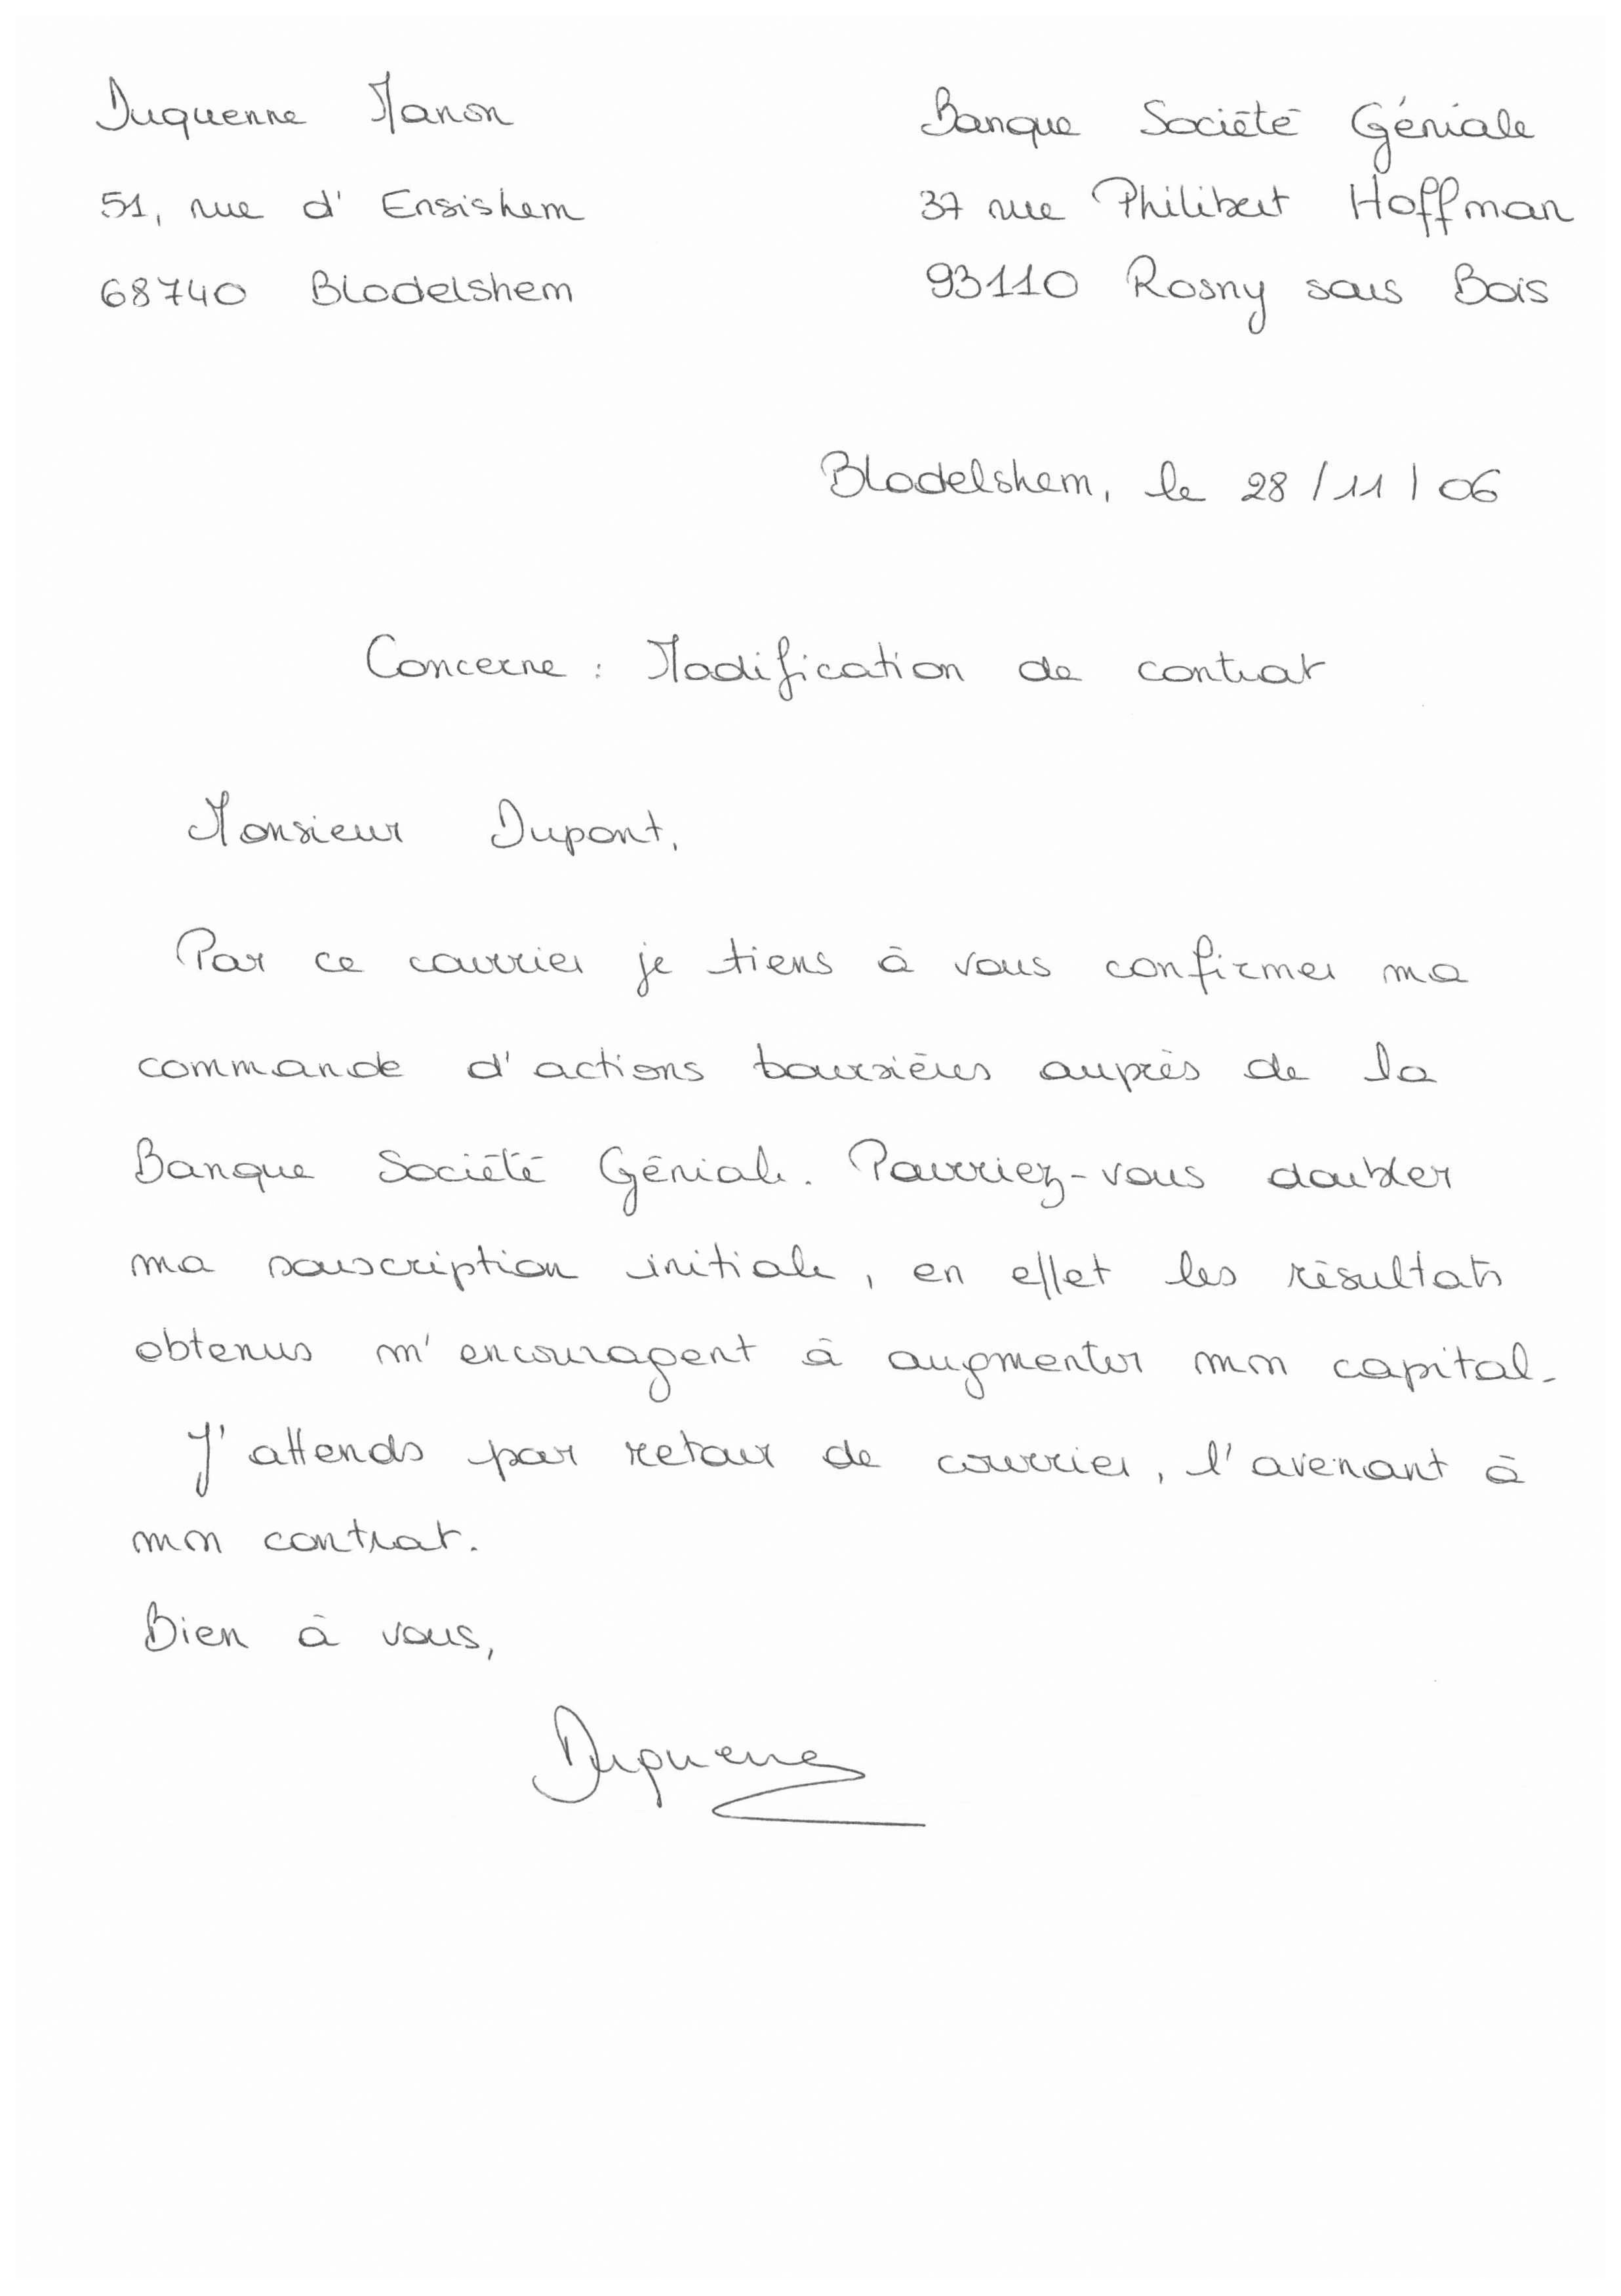 Duquenne Manon
51, rue d'Ensishem
68740 Blodelshem
Banque Société Géniale
37 rue Philibert Hoffman
93110 Rosny sous Bois
Blodelshem, le 28/11/06
Concerne : Modification de contrat
Monsieur Dupont,
Par ce courrier je tiens à vous confirmer ma
commande d'actions boursières auprès de la
Banque Société Géniale. Pourriez-vous doubler
ma souscription initiale, en effet les résultats
obtenus m'encouragent à augmenter mon capital.
J'attends par retour de courrier, l'avenant à
mon contrat.
Bien à vous,
Duquenne